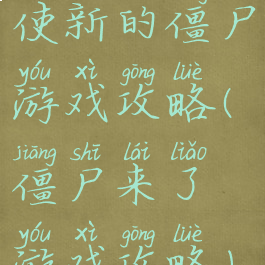 使新的僵尸
yóu xì gōng lüè
游戏攻略(
jiāng shī lái liǎo
僵尸来了
yóu xì gōng lüè
游戏攻略)